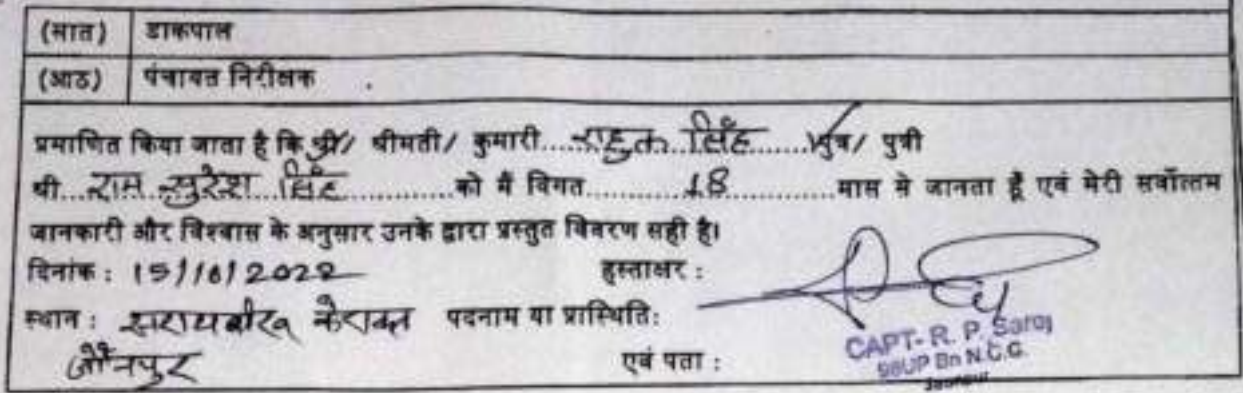 (सात) डाकपाल
(आठ) पंचायत निरीक्षक .
प्रमाणित किया जाता है कि श्री/ श्रीमती/ कुमारी.....राहुल सिंह.......पुत्र/ पुत्री
श्री...राम सुरेश सिंह.............को मैं विगत............18.............मास से जानता हूँ एवं मेरी सर्वोत्तम
जानकारी और विश्वास के अनुसार उनके द्वारा प्रस्तुत विवरण सही है।
दिनांक : 15/10/2022 हस्ताक्षर :
स्थान : केराकत पदनाम या प्रास्थिति:
जौनपुर एवं पता :
CAPT- R. P. Saroj
98UP Bn N.C.C.
Jaunpur